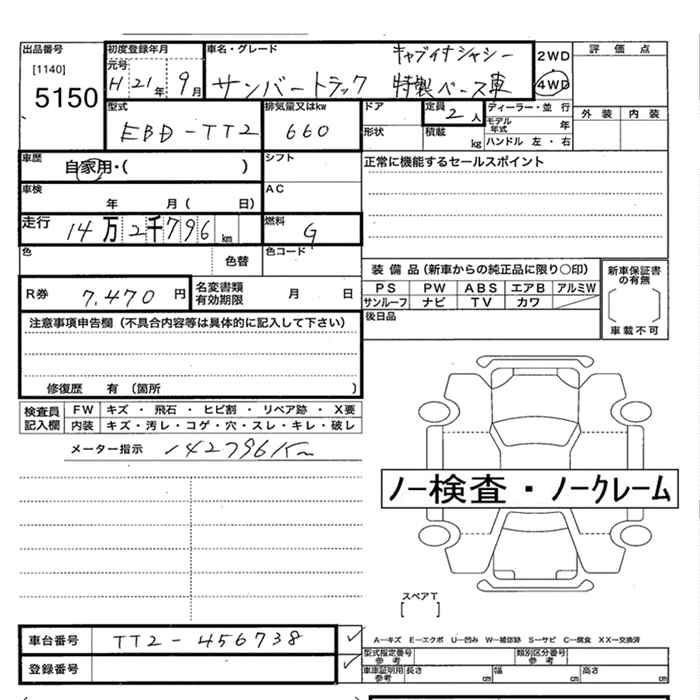 出品番号 初度登録年月 車名・グレード キャブイナシャシー 2WD 評価点
[1140] 元号 H 21年 9月 サンバートラック 特製ベース車 4WD
5150
型式 排気量又はkw ドア 定員 2人 ディーラー・並行 外装 内装
EBD-TT2 660 形状 積載 kg モデル年式 年
ハンドル 左・右
車歴 自家用・( ) シフト 正常に機能するセールスポイント
車検 年 月( 日) AC
走行 14万2千796km 燃料 G
色 色替 色コード
装備品(新車からの純正品に限り○印) 新車保証書の有無
R券 7,470円 名変書類有効期限 月 日 PS PW ABS エアB アルミW
サンルーフ ナビ TV カワ
注意事項申告欄(不具合内容等は具体的に記入して下さい) 後日品 車載不可
修復歴 有(箇所 )
検査員記入欄 FW キズ・飛石・ヒビ割・リペア跡・X要
内装 キズ・汚レ・コゲ・穴・スレ・キレ・破レ
メーター指示 142796Km
ノー検査・ノークレーム
スペアT
[ ]
車台番号 TT2-456738 ✓ A―キズ E―エクボ U―凹み W―補修跡 S―サビ C―腐食 XX―交換済
型式指定番号 参考 類別区分番号 参考
登録番号 ✓ 車庫証明用 参考 長さ cm 幅 cm 高さ cm